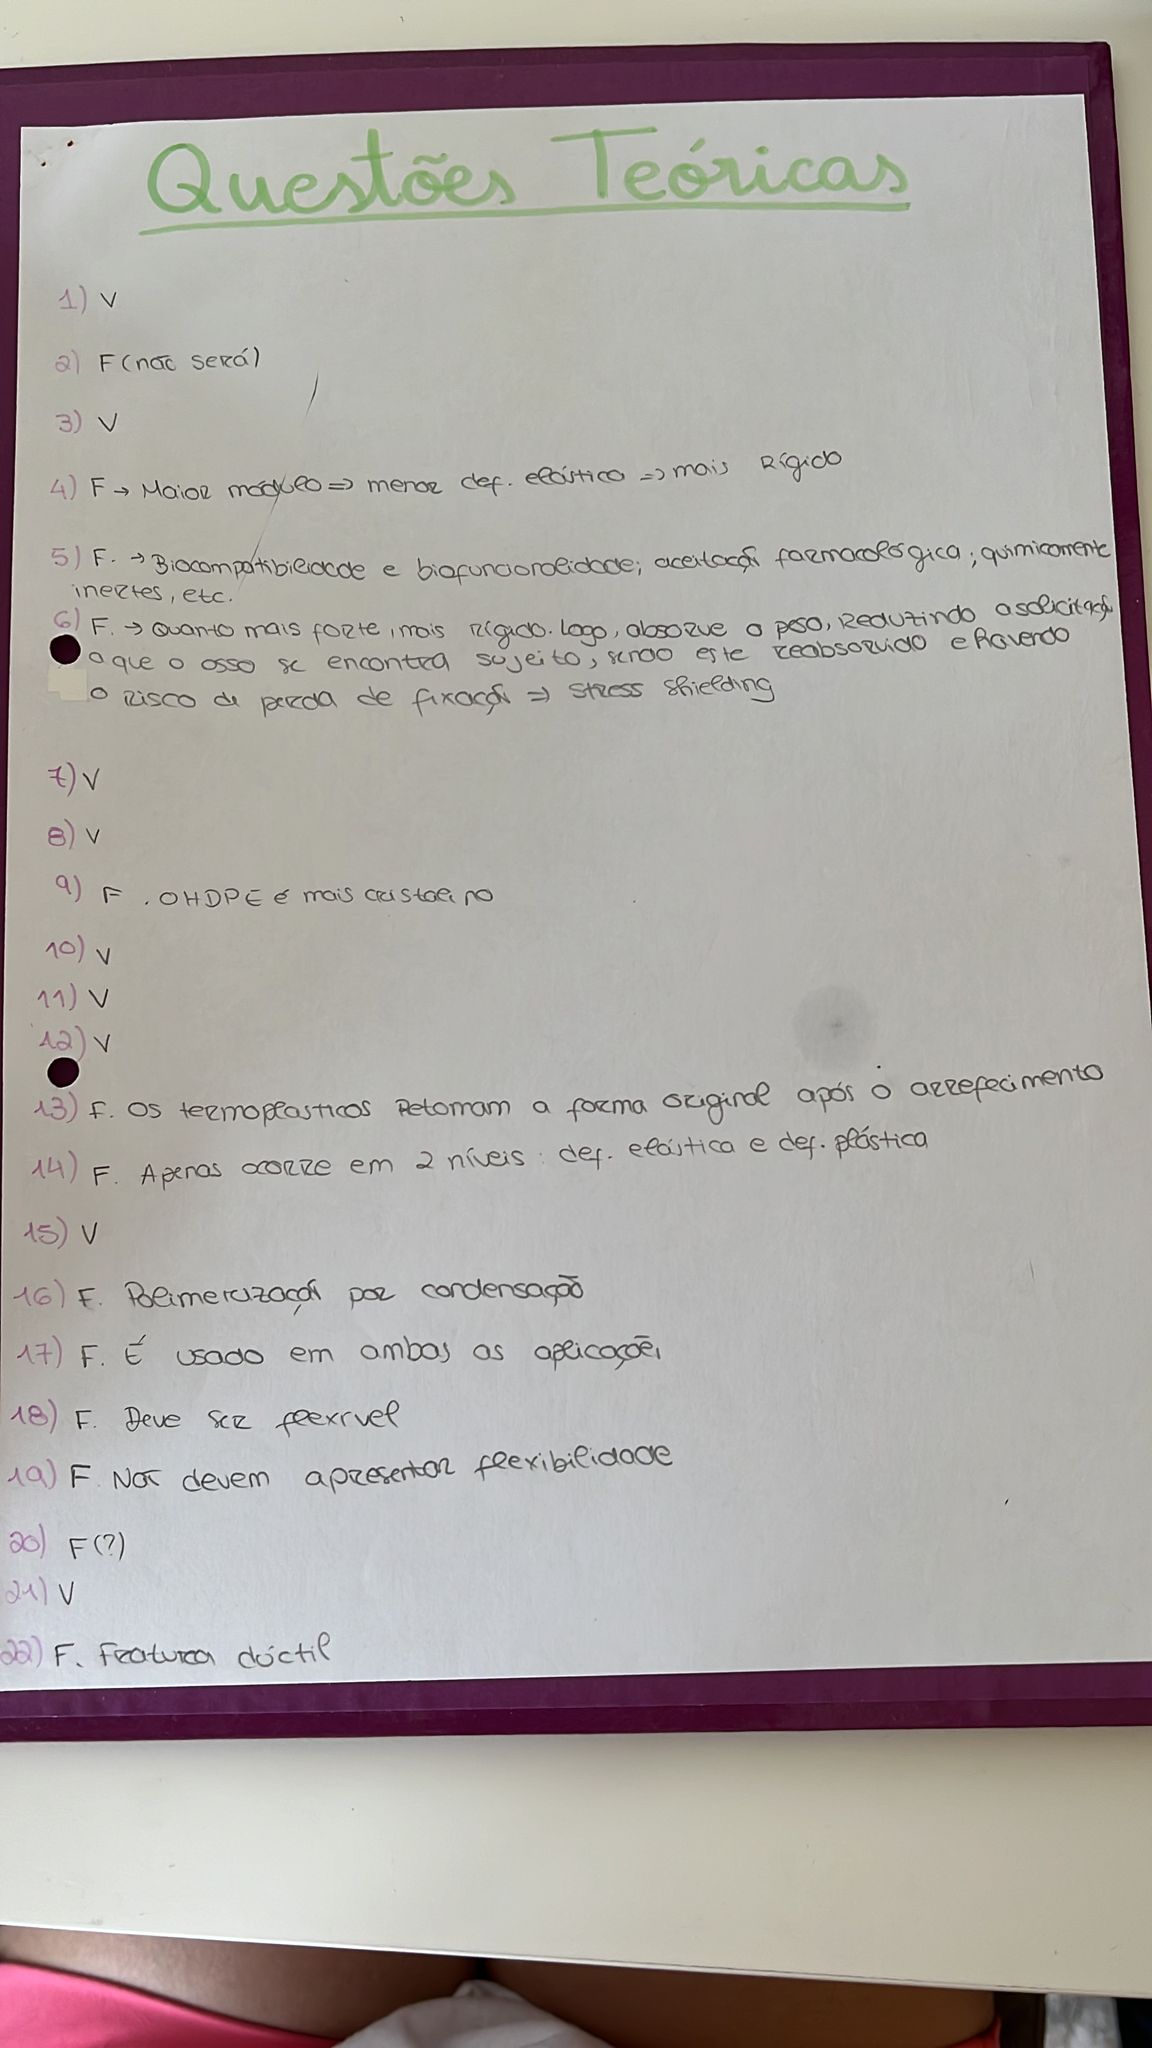 Questões Teóricas
1) V
2) F (não será)
3) V
4) F → Maior módulo => menor def. elástico => mais rígido
5) F. → Biocompatibilidade e biofuncionalidade; aceitação farmacológica; quimicamente
inertes, etc.
6) F. → Quanto mais forte, mais rígido. Logo, absorve o peso, reduzindo a solicitação
a que o osso se encontra sujeito, sendo este reabsorvido e havendo
o risco de perda de fixação => stress shielding
7) V
8) V
9) F. O HDPE é mais cristalino
10) V
11) V
12) V
13) F. Os termoplasticos retomam a forma original após o arrefecimento
14) F. Apenas ocorre em 2 níveis: def. elástica e def. plástica
15) V
16) F. Polimerização por condensação
17) F. É usado em ambas as aplicações
18) F. Deve ser flexível
19) F. Não devem apresentar flexibilidade
20) F (?)
21) V
22) F. Fratura dúctil